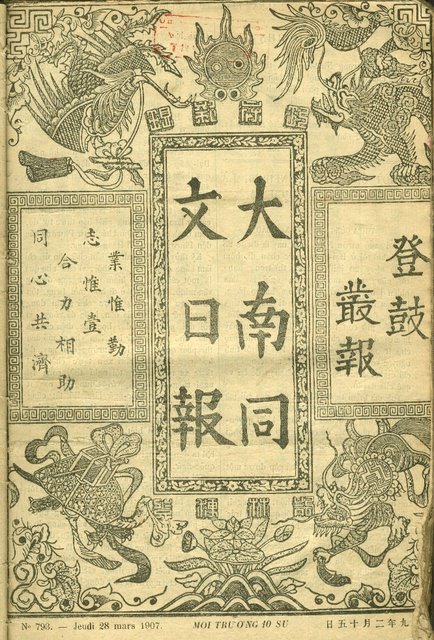 登鼓
叢報
大南同
文日報
業惟勤
志惟壹
合力相助
同心共濟
No 793. — Jeudi 28 mars 1907.
MỖI TRƯƠNG 10 SU
九年二月十五日